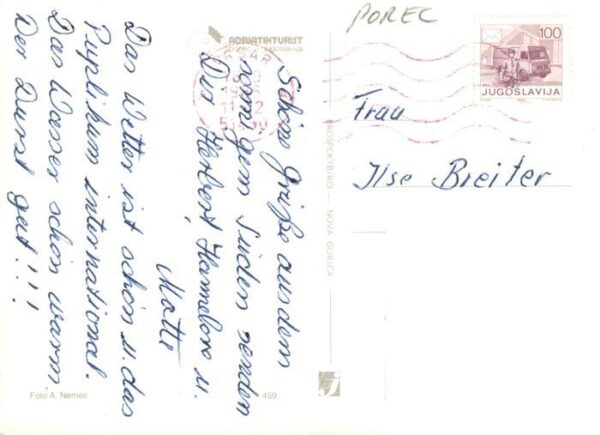 POREC
ADRIATIKTURIST
100
JUGOSLAVIJA
Schöne Grüße aus dem
sonnigem Süden senden
Dir Herbert, Hannelore u.
Motte
Das Wetter ist schön u. das
Puplikum international.
Das Wasser schön warm.
Der Durst gut!!!
Frau
Ilse Breiter
PROSPEKTBIRO — NOVA GORICA
Foto A. Nemec
459